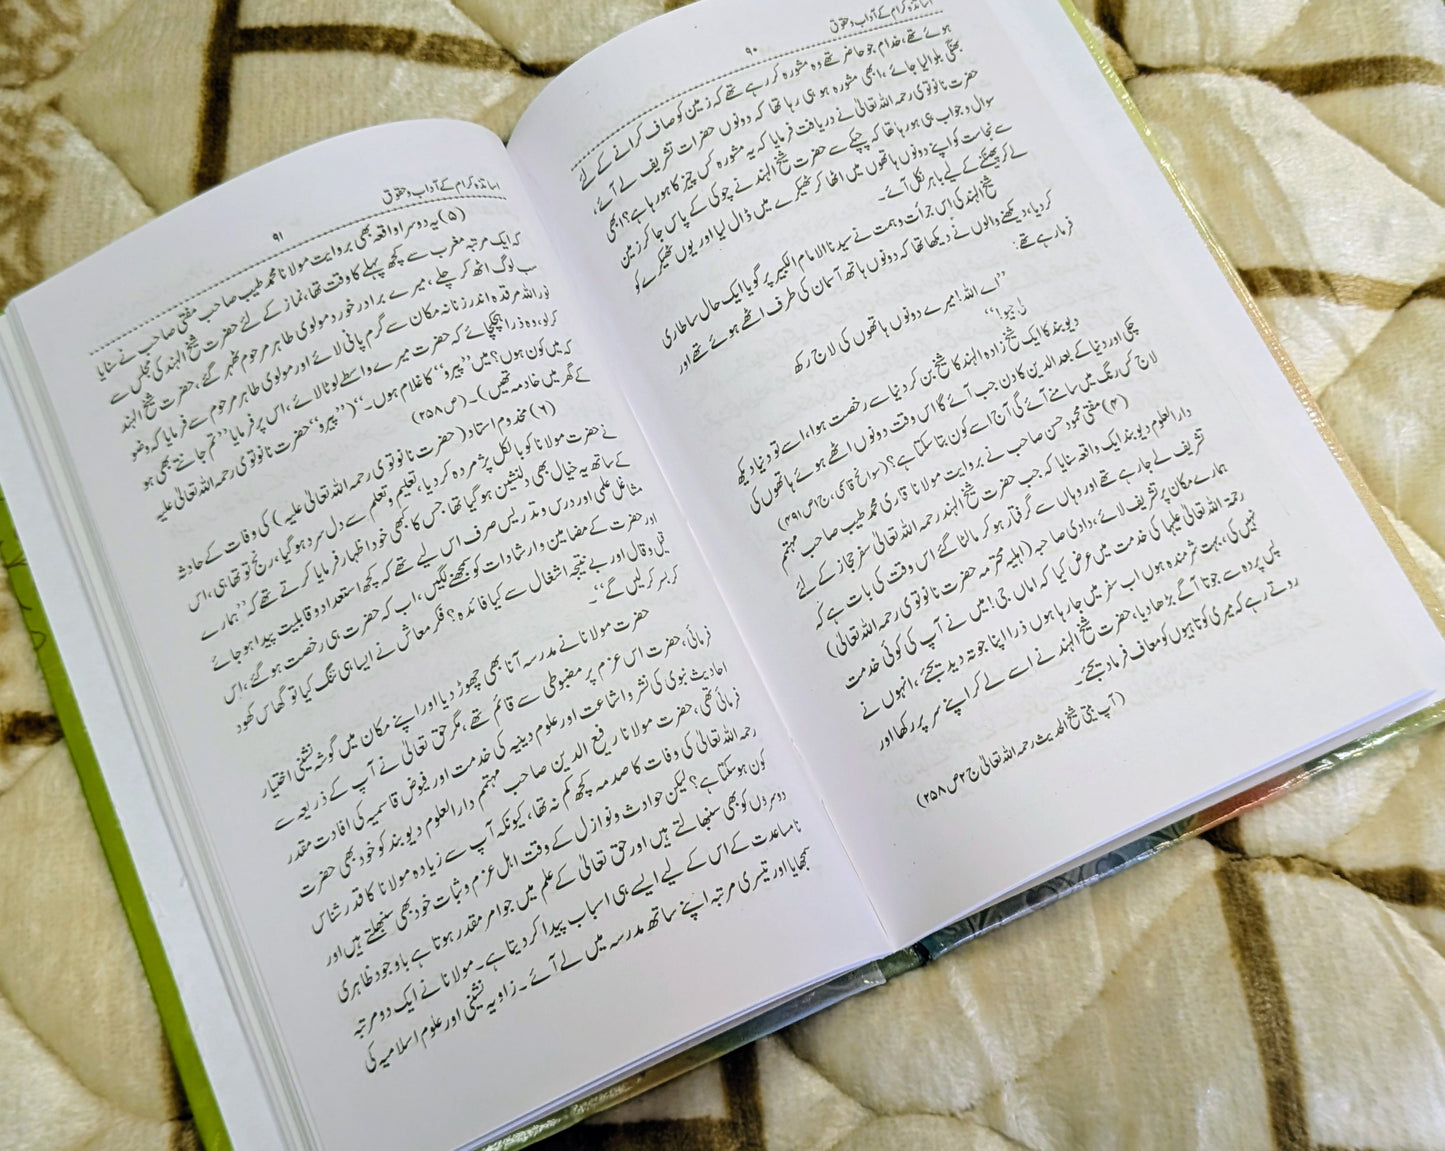 اساتذہ کرام کے آداب و حقوق
۹۰
ہوئے تھے، خدام جو حاضر تھے وہ مشورہ کر رہے تھے کہ زمین کو صاف کرانے کے لئے
بھنگی بلوالیا جائے، ابھی مشورہ ہو ہی رہا تھا کہ دونوں حضرات تشریف لے آئے،
حضرت نانوتوی رحمہ اللہ تعالیٰ نے دریافت فرمایا کہ یہ مشورہ کس چیز کا ہو رہا ہے؟ ابھی
سوال و جواب ہی ہو رہا تھا کہ چپکے سے حضرت شیخ الہند نے چوکی کے پاس جا کر زمین
سے نجاست کو اپنے دونوں ہاتھوں میں اٹھا کر ٹھیکرے میں ڈال لیا اور یوں ٹھیکرے کو
لے کر پھینکنے کے لیے باہر نکل آئے۔
شیخ الہند کی اس جرأت و ہمت نے سیدنا الامام الکبیر پر گویا ایک حال سا طاری
کر دیا، دیکھنے والوں نے دیکھا تھا کہ دونوں ہاتھ آسمان کی طرف اٹھے ہوئے تھے اور
فرما رہے تھے:
”اے اللہ! میرے دونوں ہاتھوں کی لاج رکھ
لی جیو!“
دیوبند کا ایک شیخ زادہ الہند کا شیخ بن کر دنیا سے رخصت ہوا، اسے تو دنیا دیکھ
چکی اور دنیا کے بعد الدین کا دن جب آئے گا اس وقت دونوں اٹھے ہوئے ہاتھوں کی
لاج کس رنگ میں سامنے آئے گی آج اسے کون بتا سکتا ہے؟ (سوانح قاسمی، ج۱ص۴۹۱)
(۴) مفتی محمود حسن صاحب نے بروایت مولانا قاری محمد طیب صاحب مہتمم
دارالعلوم دیوبند ایک واقعہ سنایا کہ جب حضرت شیخ الہند رحمہ اللہ تعالیٰ سفر حجاز کے لئے
تشریف لے جا رہے تھے اور وہاں سے گرفتار ہو کر مالٹا گئے اس وقت کی بات ہے کہ
ہمارے مکان پر تشریف لائے، دادی صاحبہ (اہلیہ محترمہ حضرت نانوتوی رحمہ اللہ تعالیٰ)
رحمۃ اللہ تعالیٰ علیہا کی خدمت میں عرض کیا کہ اماں جی! میں نے آپ کی کوئی خدمت
نہیں کی، بہت شرمندہ ہوں اب سفر میں جا رہا ہوں ذرا اپنا جوتہ دیدیجئے، انہوں نے
پس پردہ سے جوتا آگے بڑھا دیا، حضرت شیخ الہند نے اسے لے کر اپنے سر پر رکھا اور
روتے رہے کہ میری کوتاہیوں کو معاف فرما دیجئے۔
(آپ بیتی شیخ الحدیث رحمہ اللہ تعالیٰ ج۲ ص۲۵۸)
اساتذہ کرام کے آداب و حقوق
۹۱
(۵) یہ دوسرا واقعہ بھی بروایت مولانا محمد طیب صاحب مفتی صاحب نے سنایا
کہ ایک مرتبہ مغرب سے کچھ پہلے کا وقت تھا، نماز کے لئے حضرت شیخ الہند کی مجلس سے
سب لوگ اٹھ کر چلے، میرے برادر خورد مولوی طاہر مرحوم ٹھہر گئے، حضرت شیخ الہند
نور اللہ مرقدہ اندر زنانہ مکان سے گرم پانی لائے اور مولوی طاہر مرحوم سے فرمایا کہ وضو
کر لو، وہ ذرا ہچکچائے کہ حضرت میرے واسطے لوٹا لائے، اس پر فرمایا ”تم جانتے بھی ہو
کہ میں کون ہوں؟ میں ”پیرو“ کا غلام ہوں۔“ (”پیرو“ حضرت نانوتوی رحمہ اللہ تعالیٰ علیہ
کے گھر میں خادمہ تھیں)۔ (ص۲۵۸)
(۶) مخدوم استاد (حضرت نانوتوی رحمہ اللہ تعالیٰ علیہ) کی وفات کے حادثہ
نے حضرت مولانا کو بالکل پژمردہ کر دیا، تعلیم و تعلم سے دل سرد ہو گیا، رنج تو تھا ہی، اس
کے ساتھ یہ خیال بھی دلنشین ہو گیا تھا جس کا کبھی خود اظہار فرمایا کرتے تھے کہ ”ہمارے
مشاغل علمی اور درس و تدریس صرف اس لیے تھے کہ کچھ استعداد و قابلیت پیدا ہو جائے
اور حضرت کے مضامین و ارشادات کو سمجھنے لگیں، اب کہ حضرت ہی رخصت ہو گئے، اس
قیل و قال اور بے نتیجہ اشغال سے کیا فائدہ؟ فکر معاش نے ایسا ہی تنگ کیا تو گھاس کھود
کر بسر کر لیں گے“۔
حضرت مولانا نے مدرسہ آنا بھی چھوڑ دیا اور اپنے مکان میں گوشہ نشینی اختیار
فرمائی، حضرت اس عزم پر مضبوطی سے قائم تھے، مگر حق تعالیٰ نے آپ کے ذریعہ سے
احادیث نبوی کی نشر و اشاعت اور علوم دینیہ کی خدمت اور فیوض قاسمیہ کی افادت مقدر
فرمائی تھی، حضرت مولانا رفیع الدین صاحب مہتمم دارالعلوم دیوبند کو خود بھی حضرت
رحمہ اللہ تعالیٰ کی وفات کا صدمہ کچھ کم نہ تھا، کیونکہ آپ سے زیادہ مولانا کا قدر شناس
کون ہو سکتا ہے؟ لیکن حوادث و نوازل کے وقت اہل عزم و ثبات خود بھی سنبھلتے ہیں اور
دوسروں کو بھی سنبھالتے ہیں اور حق تعالیٰ کے علم میں جو امر مقدر ہوتا ہے باوجود ظاہری
نامساعدت کے اس کے لیے ایسے ہی اسباب پیدا کر دیتا ہے۔ مولانا نے ایک دو مرتبہ
سمجھایا اور تیسری مرتبہ اپنے ساتھ مدرسہ میں لے آئے۔ زاویہ نشینی اور علوم اسلامیہ کی